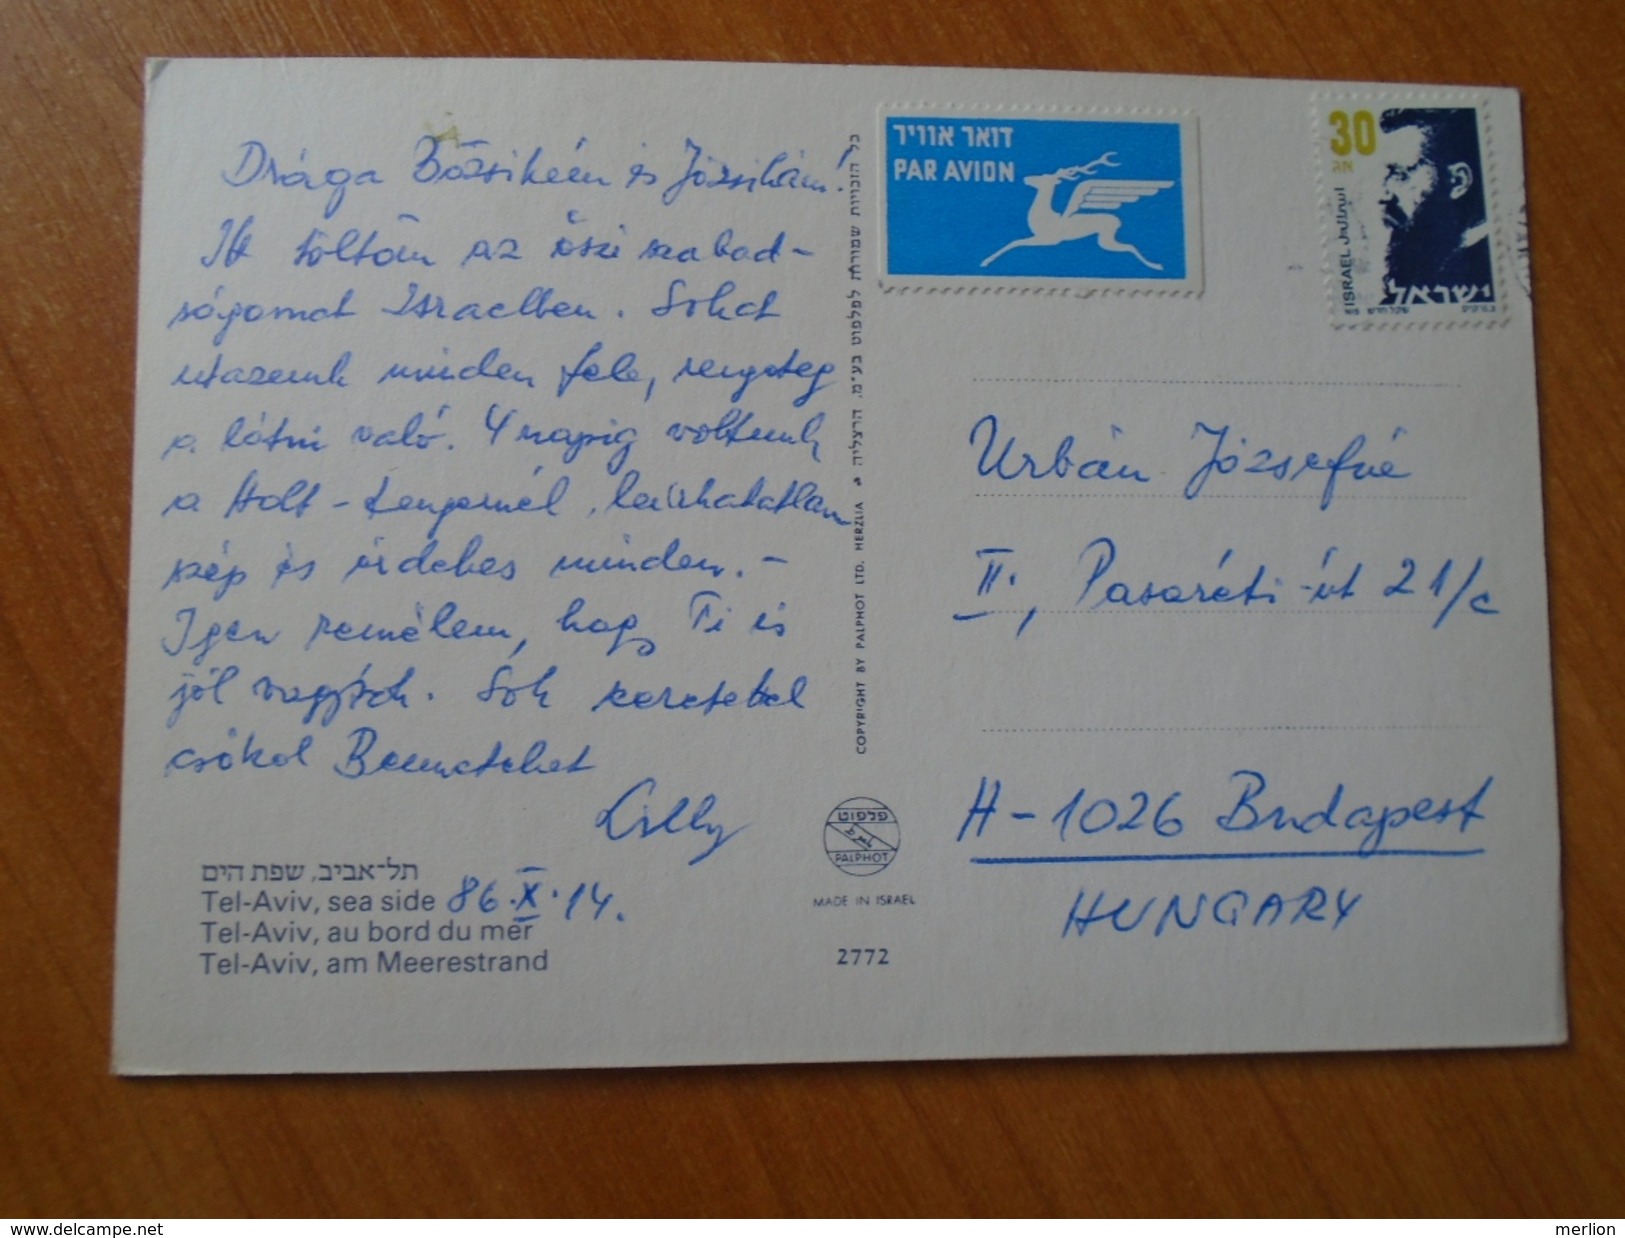 Drága Bözsikém és Józsikám!
Itt töltöm az őszi szabad-
ságomat Izraelben. Sokat
utazunk minden fele, rengeteg
a látni való. 4 napig voltunk
a Holt-tengernél, leírhatatlan
szép és érdekes minden. -
Igen remélem, hogy Ti is
jól vagytok. Sok szeretettel
csókol Benneteket
Lilly
תל-אביב, שפת הים
Tel-Aviv, sea side 86.X.14.
Tel-Aviv, au bord du mer
Tel-Aviv, am Meerestrand
כל הזכויות שמורות לפלפוט בע"מ. הרצליה
COPYRIGHT BY PALPHOT LTD. HERZLIA
פלפוט
PALPHOT
MADE IN ISRAEL
2772
דואר אוויר
PAR AVION
30
ISRAEL
ישראל
Urbán Józsefné
II., Pasaréti-út 21/c
H-1026 Budapest
HUNGARY
merlion